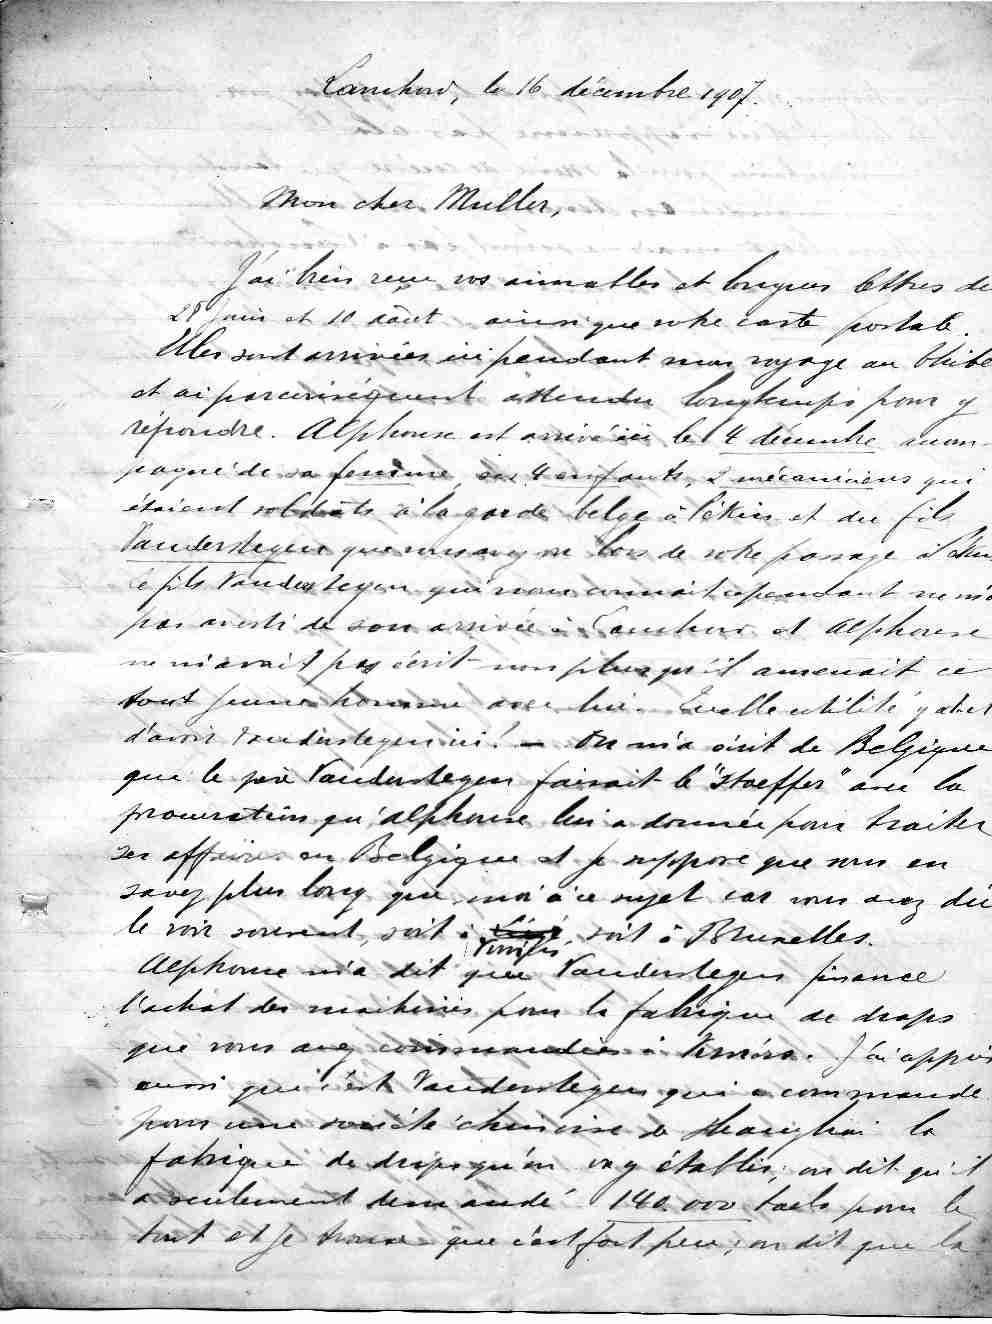 Lanchow, le 16 décembre 1907.
Mon cher Muller,
J'ai bien reçu vos aimables et longues lettres de
28 juin et 10 août ainsi que votre carte postale.
Elles sont arrivées ici pendant mon voyage au Thibet
et ai par conséquent attendu longtemps pour y
répondre. Alphonse est arrivé ici le 4 décembre accom-
pagné de sa femme, ses 4 enfants, 2 mécaniciens qui
étaient soldats à la garde belge à Pékin et du fils
Vanderstegen que vous avez vu lors de votre passage à
Le fils Vanderstegen qui nous connait cependant ne m'a
pas averti de son arrivée à Lanchow et Alphonse
ne m'avait pas écrit non plus qu'il amenait ce
tout jeune homme avec lui. Quelle utilité y a t il
d'avoir Vanderstegen ici! — On m'a écrit de Belgique
que le père Vanderstegen faisait le "stoeffer" avec la
procuration qu'Alphonse lui a donnée pour traiter
ses affaires en Belgique et je suppose que vous en
savez plus long que moi à ce sujet car vous avez dû
le voir souvent, soit à Verviers, soit à Bruxelles.
Alphonse m'a dit que Vanderstegen finance
l'achat des machines pour la fabrique de draps
que vous avez commandées à Verviers. J'ai appris
aussi que c'est Vanderstegen qui a commandé
pour une société chinoise de Shanghai la
fabrique de draps qu'on va y établir; on dit qu'il
a seulement demandé 140.000 taels pour le
tout et je trouve que c'est fort peu; on dit que la